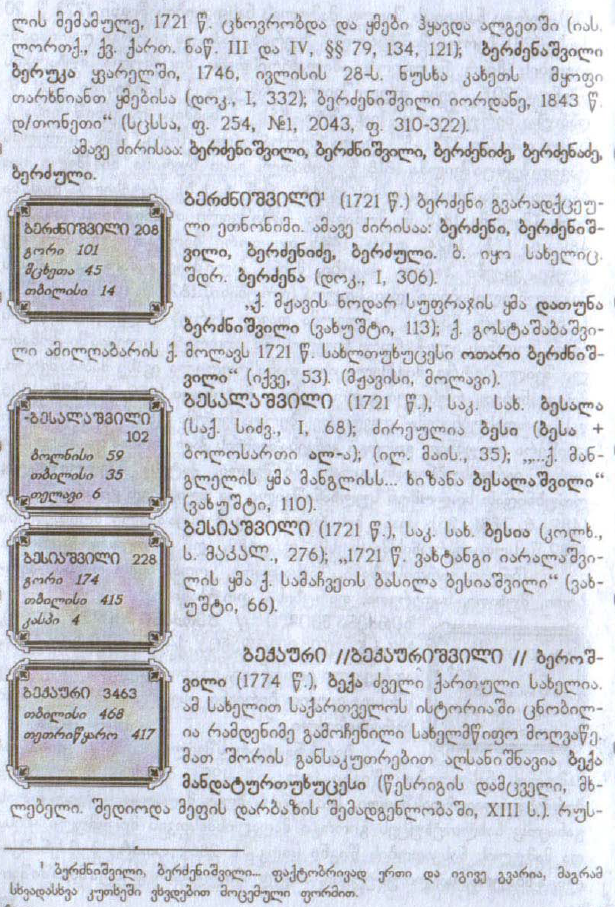 ლის მემამულე, 1721 წ. ცხოვრობდა და ყმები ჰყავდა ალგეთში (იას.
ლორთქ., ქვ. ქართ. ნაწ. III და IV, §§ 79, 134, 121); ბერძენაშვილი
ბერუკა ყვარელში, 1746, ივლისის 28-ს. ნუსხა კახეთს მყოფი
თარხნიანთ ყმებისა (დოკ., I, 332); ბერძენიშვილი იორდანე, 1843 წ.
დ/თონეთი“ (სცსსა, ფ. 254, №1, 2043, ფ. 310-322).
ამავე ძირისაა: ბერძენიშვილი, ბერძნიშვილი, ბერძენიძე, ბერძენაძე,
ბერძული.
ბერძნიშვილი 208
გორი 101
მცხეთა 45
თბილისი 14
ბერძნიშვილი¹ (1721 წ.) ბერძენი გვარადქცეუ-
ლი ეთნონიმი. ამავე ძირისაა: ბერძენი, ბერძენიშ-
ვილი, ბერძენიძე, ბერძული. ბ. იყო სახელიც.
შდრ. ბერძენა (დოკ., I, 306).
„ქ. მჟავის ნოდარ სუფრაჯის ყმა დათუნა
ბერძნიშვილი (ვახუშტი, 113); ქ. გოსტაშაბაშვი-
ლი ამილღაბარის ქ. მოლავს 1721 წ. სახლთუხუცესი ოთარი ბერძნიშ-
ვილი“ (იქვე, 53). (მჟავისი, მოლავი).
-ბესალაშვილი
102
ბოლნისი 59
თბილისი 35
თელავი 6
ბესალაშვილი (1721 წ.), საკ. სახ. ბესალა
(საქ. სიძვ., I, 68); ძირეულია ბესი (ბესა +
ბოლოსართი ალ-ა); (ილ. მაის., 35); „...ქ. მან-
გლელის ყმა მანგლისს... ხიზანა ბესალაშვილი“
(ვახუშტი, 110).
ბესიაშვილი 228
გორი 174
თბილისი 415
კასპი 4
ბესიაშვილი (1721 წ.), საკ. სახ. ბესია (კოლხ.,
ს. მაკალ., 276); „1721 წ. ვახტანგი იარალაშვი-
ლის ყმა ქ. სამაჩვეთს ბასილა ბესიაშვილი“ (ვახ-
უშტი, 66).
ბექაური 3463
თბილისი 468
თეთრიწყარო 417
ბექაური //ბექაურიშვილი // ბეროშ-
ვილი (1774 წ.), ბექა ძველი ქართული სახელია.
ამ სახელით საქართველოს ისტორიაში ცნობილ-
ია რამდენიმე გამოჩენილი სახელმწიფო მოღვაწე.
მათ შორის განსაკუთრებით აღსანიშნავია ბექა
მანდატურთუხუცესი (წესრიგის დამცველი, მხ-
ლებელი. შედიოდა მეფის დარბაზის შემადგენლობაში, XIII ს.). რუს-
¹ ბერძნიშვილი, ბერძენიშვილი... ფაქტობრივად ერთი და იგივე გვარია, მაგრამ
სხვადასხვა კუთხეში ვხვდებით მოცემული ფორმით.